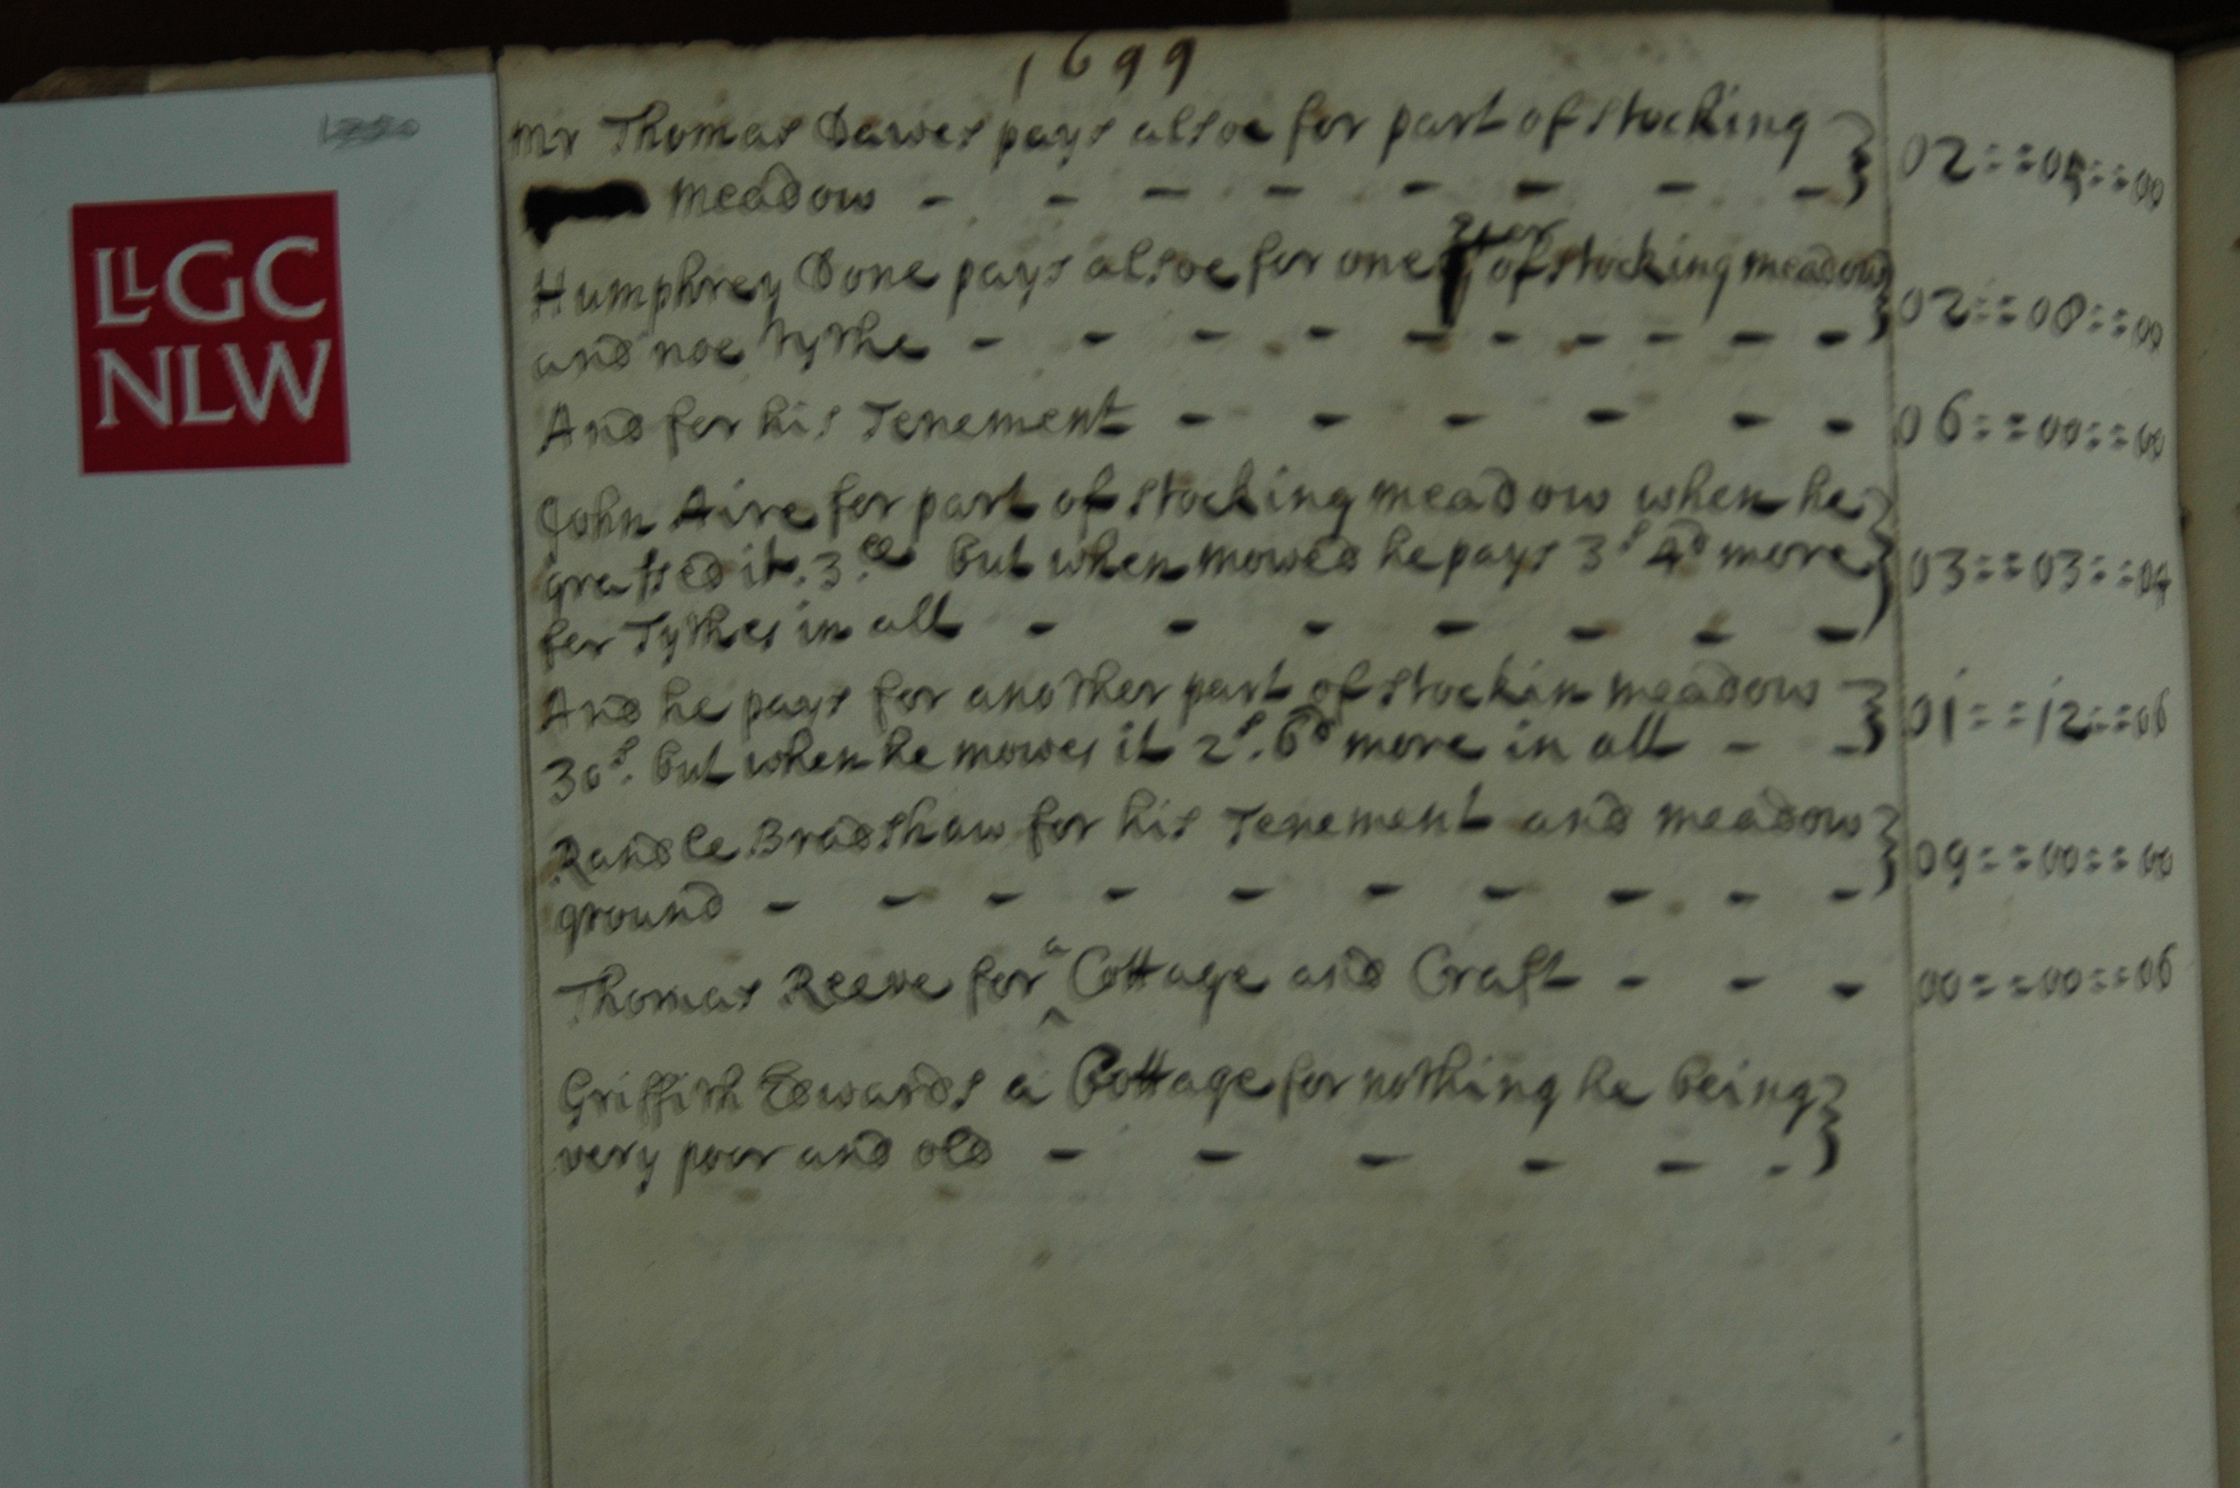 1699
LLGC
NLW
Mr Thomas Dawes pays alsoe for part of stocking
meadow - - - - - - - - 02==05==00
Humphrey Done pays alsoe for one qter of stocking meadow
and noe Tythe - - - - - - - - - - 02==00==00
And for his Tenement - - - - - - 06==00==00
John Aire for part of stocking meadow when he
grassed it. 3.ll but when mowed he pays 3s 4d more
for Tythes in all - - - - - - - 03==03==04
And he pays for another part of stockin meadow
30s. but when he mowes it 2s. 6d more in all - - 01==12==06
Randle Bradshaw for his Tenement and meadow
ground - - - - - - - - - - 09==00==00
Thomas Reeve for a Cottage and Craft - - - 00==00==06
Griffith Edwards a Cottage for nothing he being
very poor and old - - - - - -